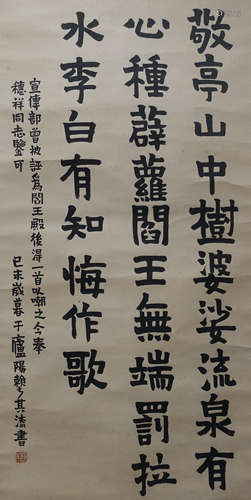 敬亭山中樹婆娑流泉有
心種薜蘿閻王無端罰拉
水李白有知悔作歌
宣傳部曾被誣爲閻王殿後得一首以嘲之今奉
穗祥同志鑒可
己未歲暮于廬陽賴少其漬書